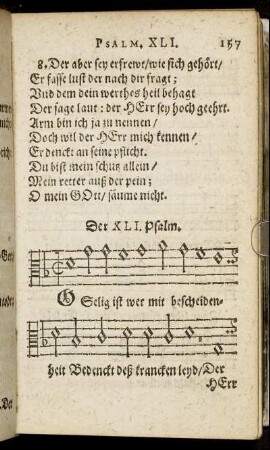 PSALM. XLI. 157
8. Der aber sey erfrewt/wie sich gehört/
Er fasse lust der nach dir fragt;
Vnd dem dein werthes heil behagt
Der sage laut: der HErr sey hoch geehrt.
Arm bin ich ja zu nennen/
Doch wil der HErr mich kennen/
Er denckt an seine pflicht.
Du bist mein schutz allein/
Mein retter auß der pein;
O mein GOtt/ säume nicht.
Der XLI. Psalm.
O Selig ist wer mit bescheiden-
heit Bedenckt deß krancken leyd/Der
HErr